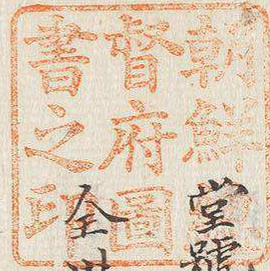 朝鮮總
督府圖
書之印
堂號
全